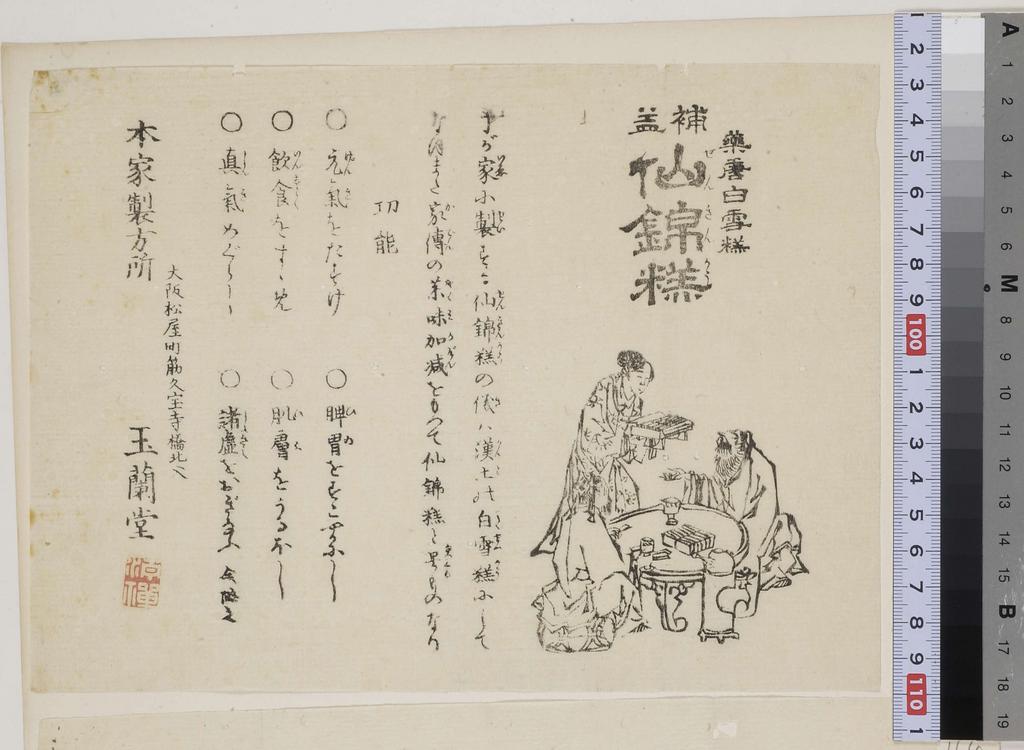 藥唐白雪糕
補益
仙錦糕
せんきんかう
予が家に製する仙錦糕の儀ハ漢土の白雪糕にして
なほまた家傳の薬味加減をもつて仙錦糕と号るものなり
功能
○元氣をたすけ
○脾胃をすこやかにし
○飲食をすゝめ
○肌膚をうるほし
○真氣めぐらし
○諸虚をおぎなふ
大阪松屋町筋久宝寺橋北へ入
本家製方所 玉蘭堂
1 2 3 4 5 6 7 8 9 100 1 2 3 4 5 6 7 8 9 110 1
A 1 2 3 4 5 6 M 8 9 10 11 12 13 14 15 B 17 18 19